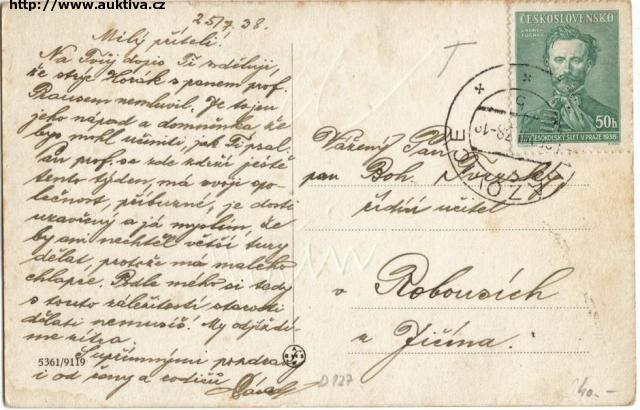 http://www.auktiva.cz
25/7. 38.
Milý příteli!
Na Tvůj dopis Ti sděluji,
že strýc Horák s panem prof.
nemluvil. Je to jen
jeho nápad a domněnka, že
bys mohl učiniti, jak Ti psal.
Pan prof. se zde zdrží ještě
tento týden, má svoji spo-
lečnost, příbuzné, je dosti
uzavřený a já myslím, že
by ani nechtěl větší tury
dělat, protože má malého
chlapce. Podle mého si tedy
s touto záležitostí starosti
dělati nemusíš! My odjíždí-
me zítra.
S upřímnými pozdravy
i od ženy a rodičů
5361/9119
ČESKOSLOVENSKO
50h
SLET V PRAZE 1938
Vážený Pan
pan Boh.
řídící učitel
v Robousích
u Jičína.
D 127
40.-